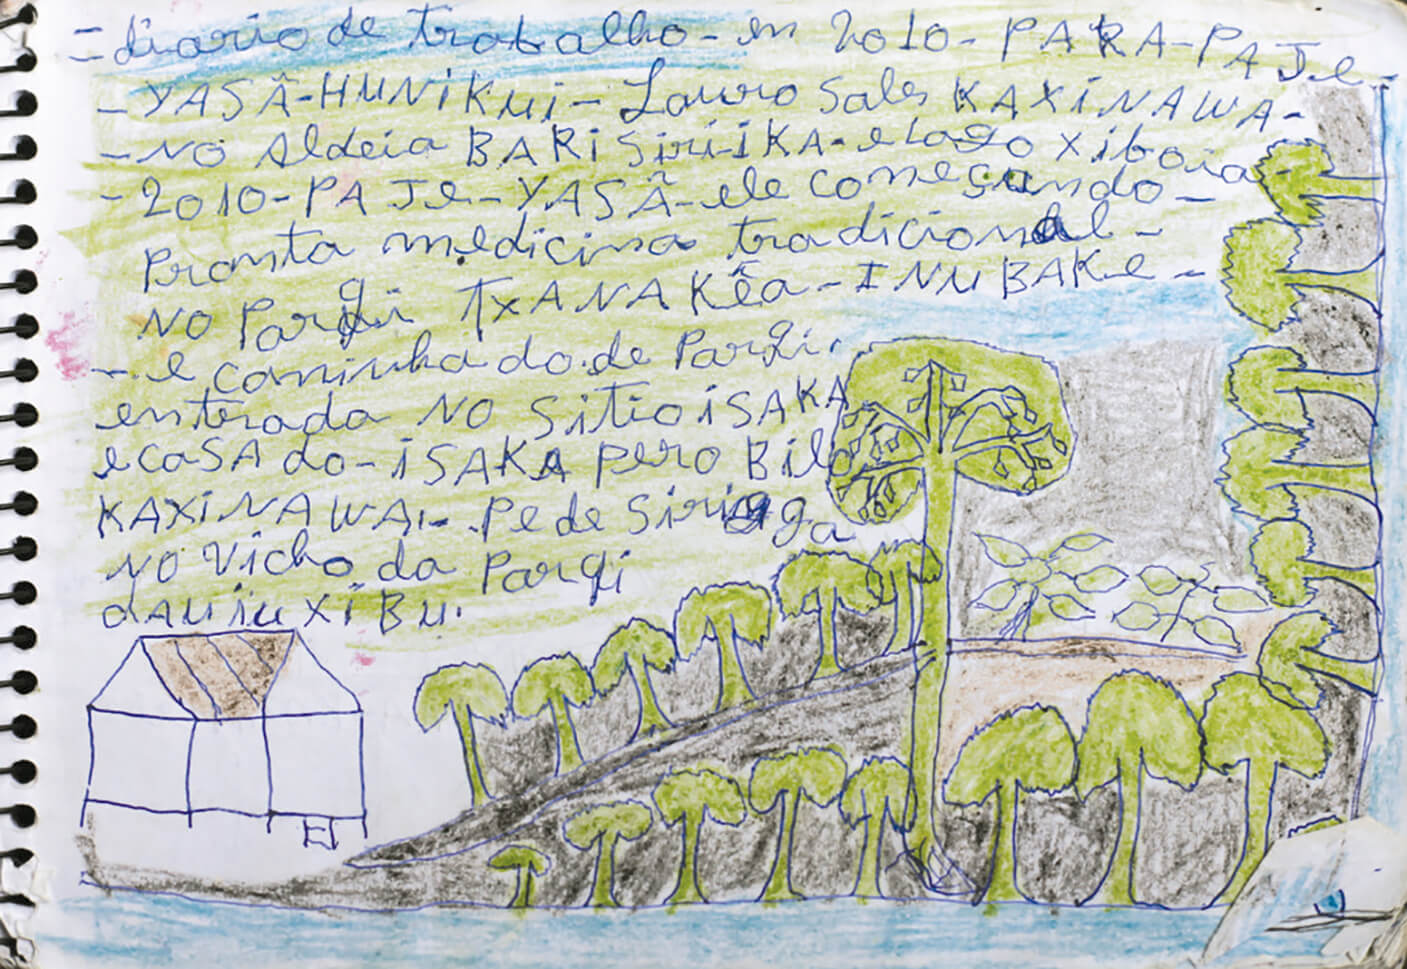 = diario de trabalho - en 2010 - PARA - PAJe -
- YASÃ - HUNIKUi - Lauro Sales KAXiNAWA -
- NO Aldeia BARiSiRi-iKA - e Lago xiboia -
- 2010 - PAJe - YASÃ - ele começando -
Pranta medicina tradicional -
NO Parqi TXANAKÊa - INUBAKe -
- e caminhado de Parqi.
enterada NO Sitio iSAKA
e CaSA do - iSAKA Pero Bilo
KAXiNAWA. - Pe de Siriga
NO Vicho da Parqi
dAUiuxiBu.